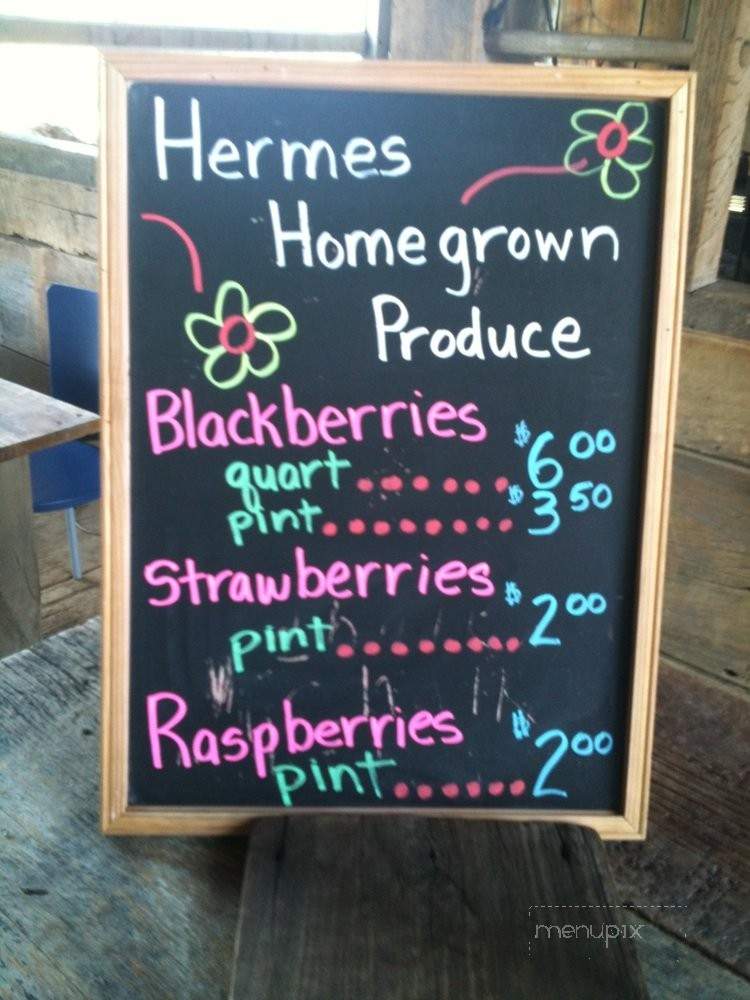 Hermes
Homegrown
Produce
Blackberries
quart...... $6 00
pint........ $3 50
Strawberries
pint....... $2 00
Raspberries
pint...... $2 00
menupix